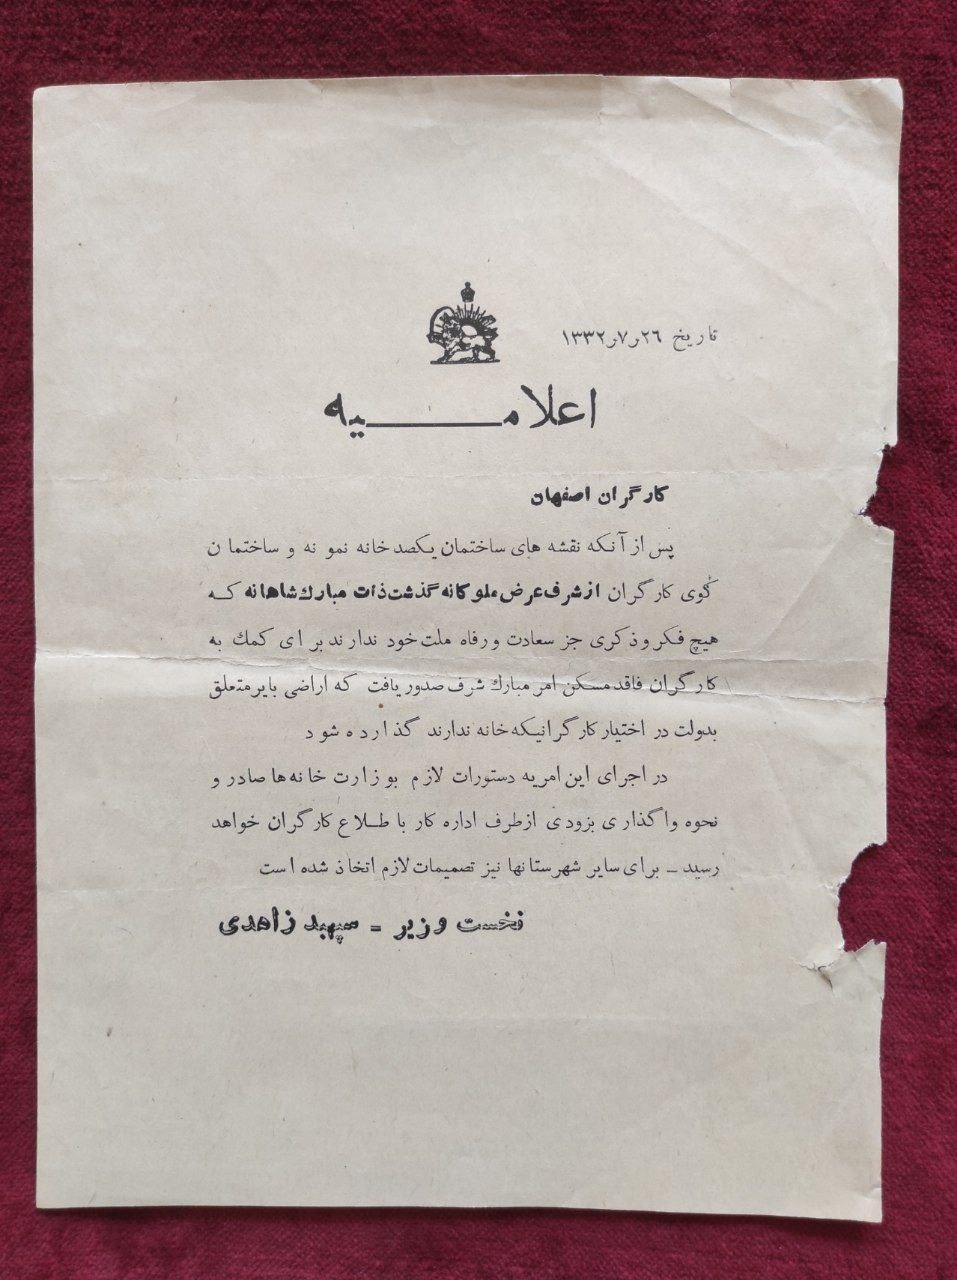 تاریخ ۲۶ر۷ر۱۳۳۲
اعلامیه
کارگران اصفهان
پس از آنکه نقشه های ساختمان یکصد خانه نمونه و ساختمان
کوی کارگران از شرف عرض ملوکانه گذشت ذات مبارك شاهانه که
هیچ فکر و ذکری جز سعادت و رفاه ملت خود ندارند برای کمك به
کارگران فاقد مسکن امر مبارك شرف صدور یافت که اراضی بایر متعلق
بدولت در اختیار کارگرانیکه خانه ندارند گذارده شود
در اجرای این امریه دستورات لازم بوزارت خانه ها صادر و
نحوه واگذاری بزودی از طرف اداره کار باطلاع کارگران خواهد
رسید ـ برای سایر شهرستانها نیز تصمیمات لازم اتخاذ شده است
نخست وزیر = سپهبد زاهدی